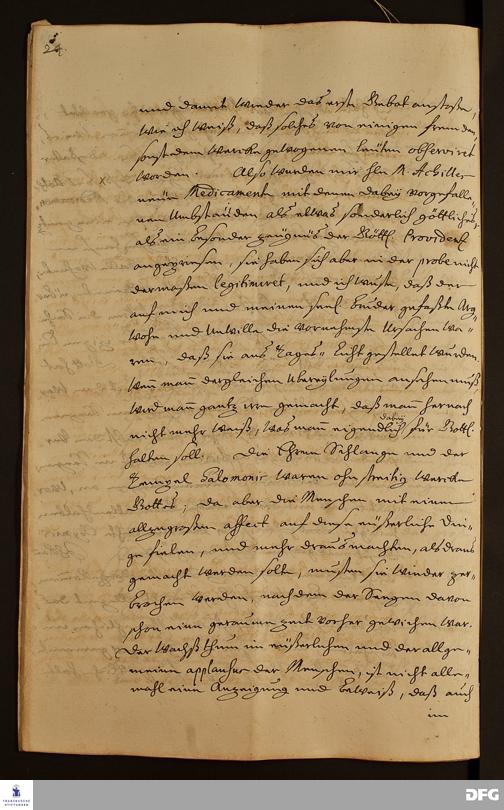 24
und damit wieder das erste Gebot anstoßen,
wie ich weiß, daß solches von einigen fremden,
sonst dem wercke gewogenen leuten observiret
worden. Also wurden mir H. M. Achilles
neue Medicamente mit denen dabey vorgefalle-
nen Umbständen als etwas sonderlich göttliches,
als ein besonder zeugnüs der Göttl. Providentz
angepriesen, sie haben sich aber in der probe nicht
dermaßen legitimiret, und ich wuste, daß der
auf mich und meinen seel. bruder gefaßte Arg-
wohn und Unwille die vornehmste Ursachen wa-
ren, daß sie ans Tages-Licht gestellet wurden.
Wen man dergleichen Ubereylungen ansehen muß
wird man gantz irre gemacht, daß man hernach
nicht mehr weiß, was man eigendlich dabey für Göttl.
halten soll. Die Ehrne Schlange und der
Tempel Salomonis waren ohnstreitig wercke
Gottes; da aber die Menschen mit einem
allzugrossen affect auf diese eüßerliche Din-
ge fielen, und mehr draus machten, als draus
gemacht werden solte, musten sie wieder zer-
brochen werden, nachdem der Seegen davon
schon eine geraume zeit vorher gewichen war.
Der Wachsthum im eüßerlichen und der allge-
meine applausus der Menschen, ist nicht alle-
mahl eine Anzeigung und beweiß, daß auch
im
FRANCKESCHE STIFTUNGEN
DFG